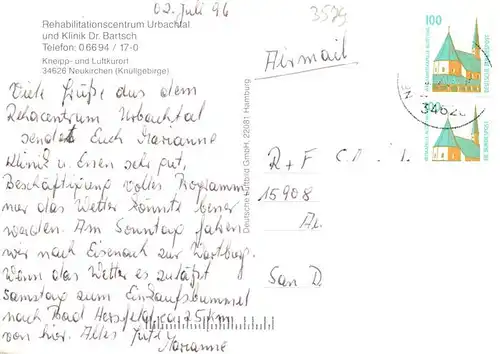 02. Juli 96
3579
Rehabilitationszentrum Urbachtal
und Klinik Dr. Bartsch
Telefon: 0 66 94 / 17-0
Kneipp- und Luftkurort
34626 Neukirchen (Knüllgebirge)
Airmail
Viele Grüße aus dem
Rehacentrum Urbachtal
sendet Euch Marianne
Klinik u. Essen sehr gut,
Beschäftigung volles Programm
nur das Wetter könnte besser
werden. Am Sonntag fahren
wir nach Eisenach zur Wartburg.
Wenn das Wetter es zuläßt
Samstag zum Einkaufsbummel
nach Bad Hersfeld ca 25 km
von hier. Alles Gute
Marianne
Deutsche Luftbild GmbH, 22081 Hamburg
R + F
15908
Al.
San D.
100
DEUTSCHE BUNDESPOST
100
34626